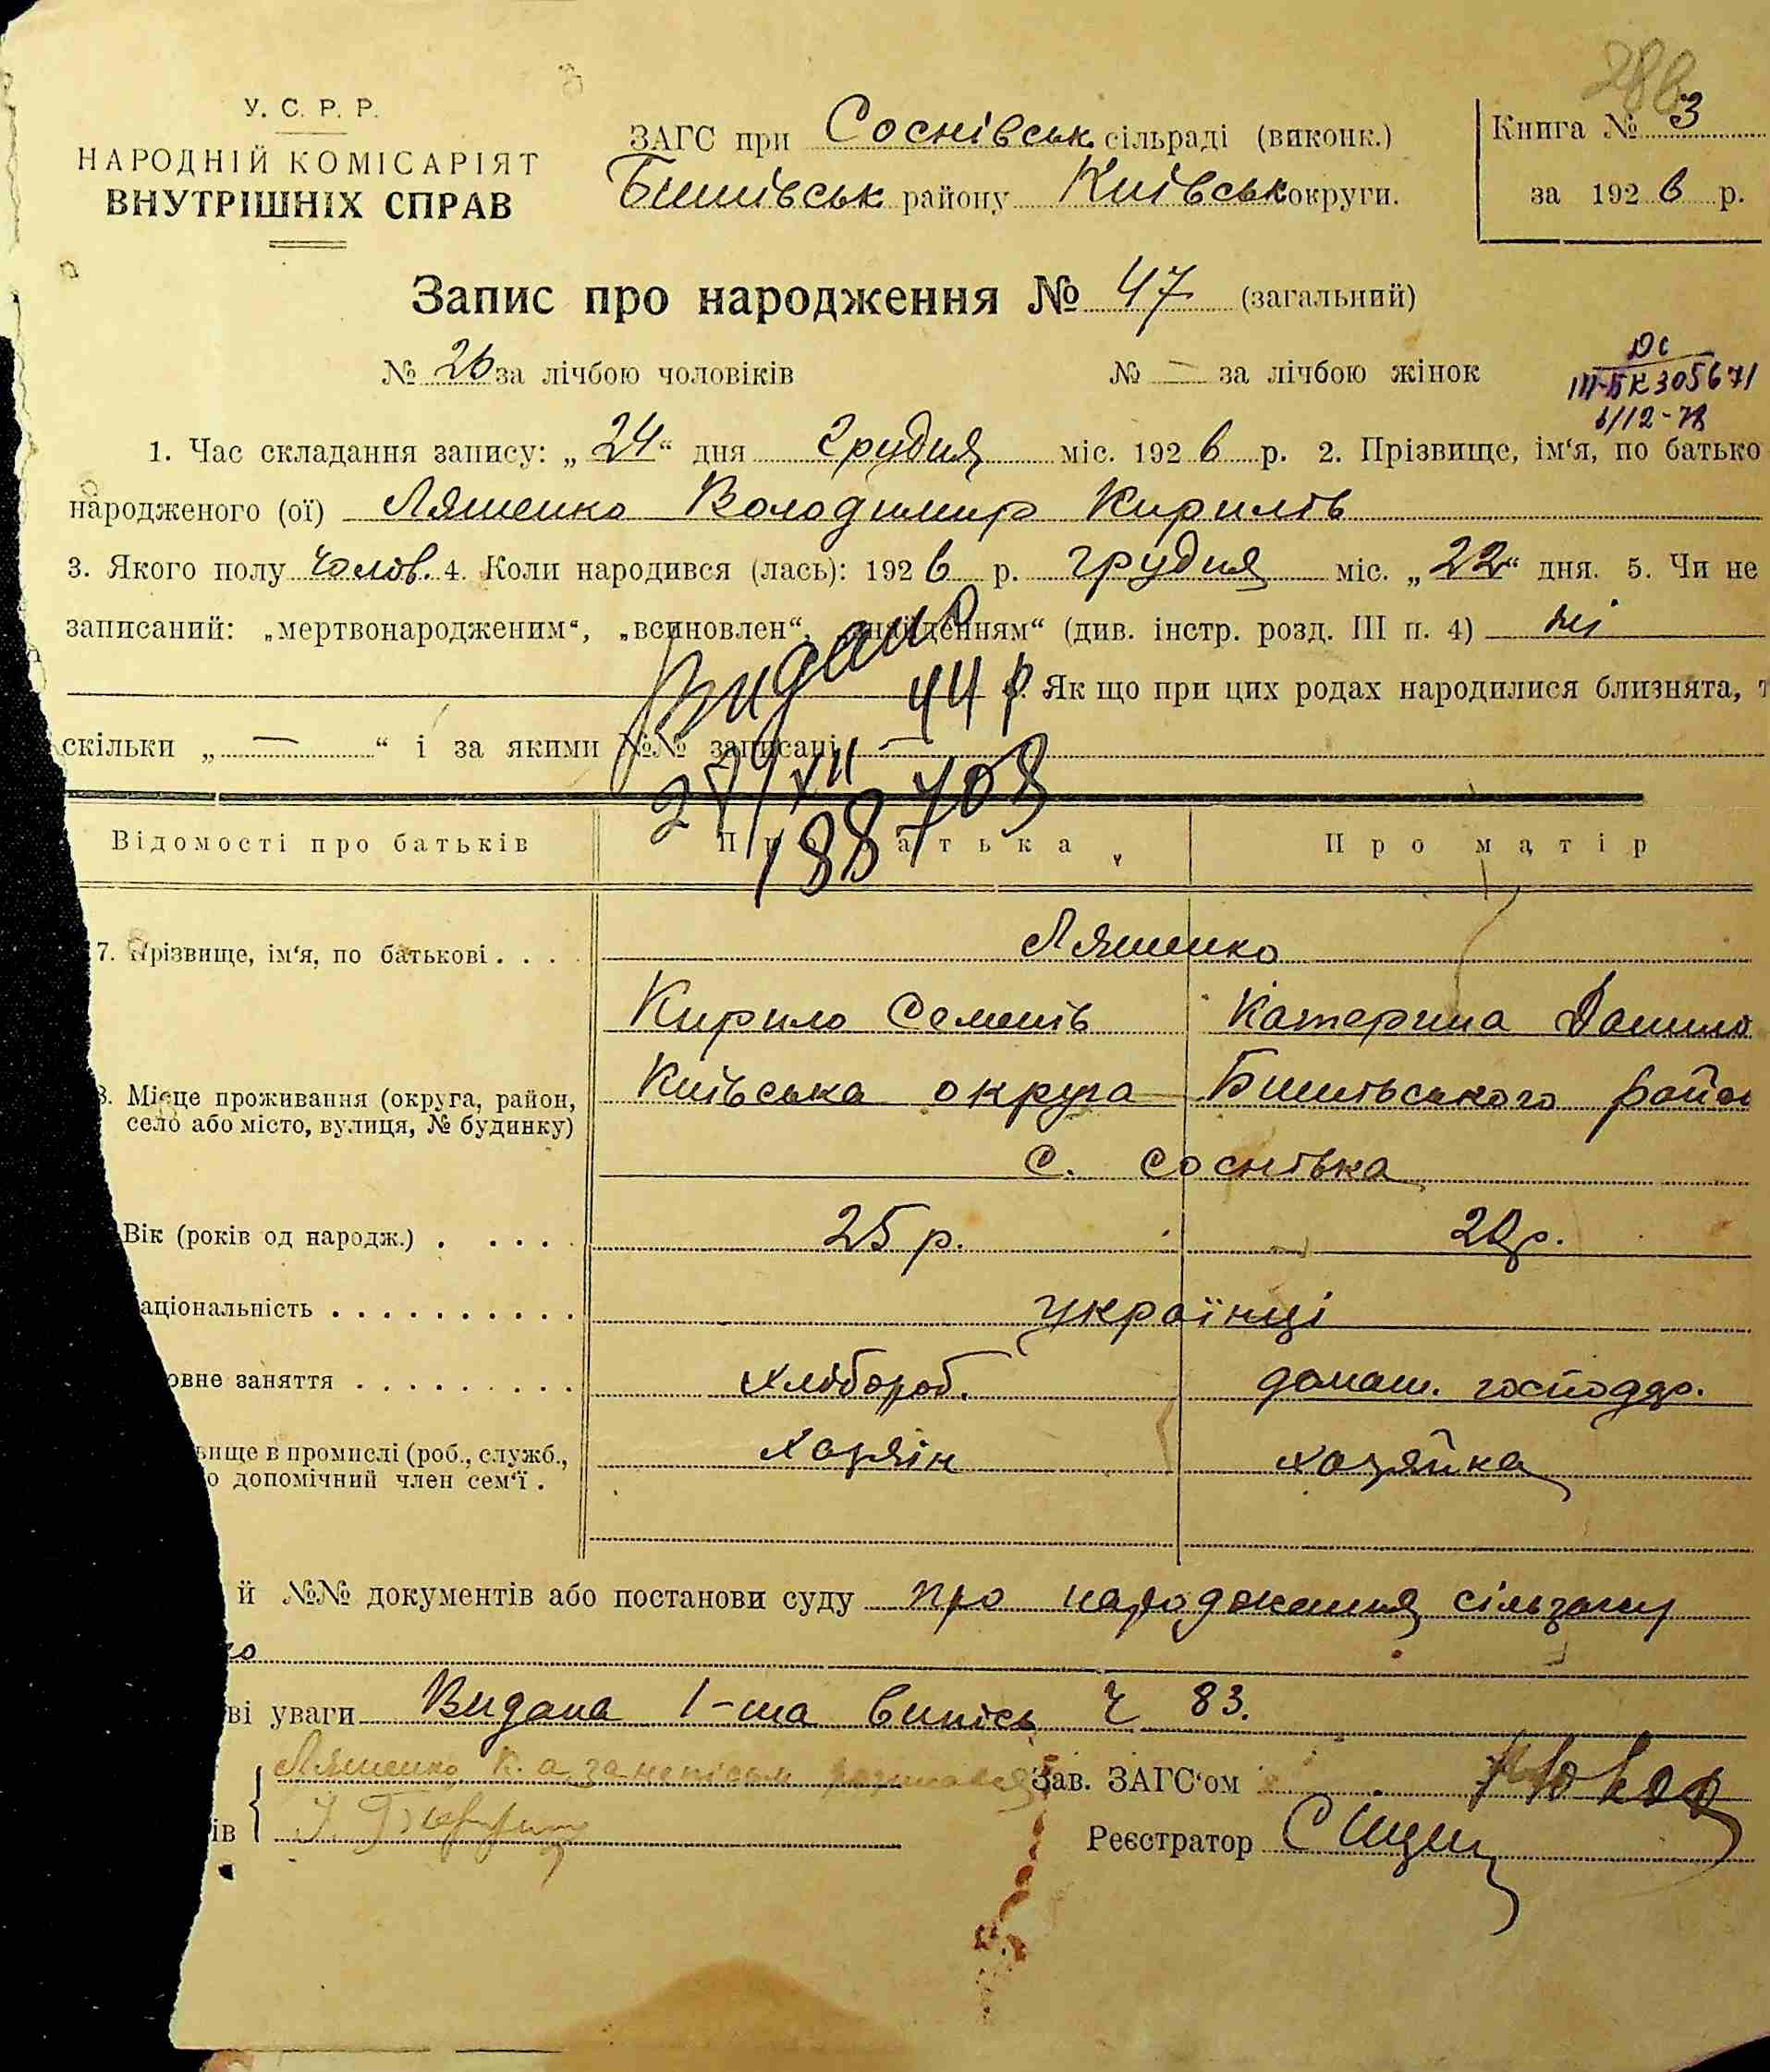 288
У. С. Р. Р.
НАРОДНІЙ КОМІСАРІЯТ
ВНУТРІШНІХ СПРАВ
ЗАГС при Соснівськ. сільраді (виконк.)
Бишівськ району Київськ округи.
Книга № 3
за 1926 р.
Запис про народження № 47 (загальний)
№ 26 за лічбою чоловіків № — за лічбою жінок
ДС
III-БК 305671
6/12-78
1. Час складання запису: „24“ дня грудня міс. 1926 р. 2. Прізвище, ім‘я, по батько
народженого (ої) Ляшенко Володимир Кирилів
3. Якого полу чолов. 4. Коли народився (лась): 1926 р. грудня міс. „22“ дня. 5. Чи не
записаний: „мертвонародженим“, „всиновлен“, „знайденням“ (див. інстр. розд. III п. 4) ні
Як що при цих родах народилися близнята, т
скільки „ — “ і за якими №№ записані —
Видано
27/XII 44 р.
188708
Відомості про батьків Про батька Про матір
7. Прізвище, ім‘я, по батькові . . . . Ляшенко
Кирило Семенів Катерина Данило
8. Місце проживання (округа, район, Київська округа Бишівського район
село або місто, вулиця, № будинку)
с. Соснівка
Вік (років од народж.) . . . . . 25 р. 20 р.
аціональність . . . . . . . . . . українці
овне заняття . . . . . . . . . хлібороб. домаш. господар.
вище в промислі (роб., служб., хазяїн хазяйка
о допомічний член сем‘ї .
й №№ документів або постанови суду про народження сільзагсу
ко
ві уваги Видана 1-ша випись Ч 83.
Ляшенко К. а за неписьм розписався
Зав. ЗАГС‘ом
ів
Реєстратор